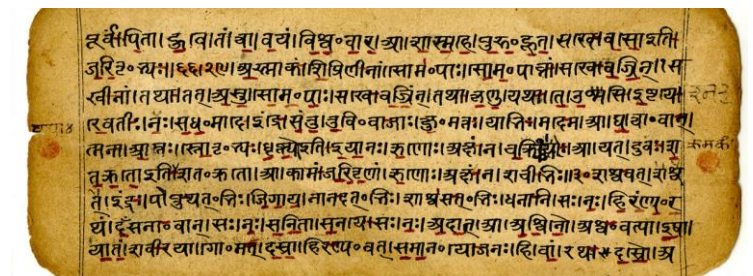 पूर्वं।पिता।हुवे।तं।त्वा।वयं।विश्व॰वार।आ।शास्महे।पुरु॰हूत।सखे।वसो इति
जरितृ॰भ्यः।अस्माकं।शिप्रिणीनां।सोम॰पाः।सोम॰पाव्नां।सखे।वज्रिन्।स
खीनां।तथा।तत्।अस्तु।सोम॰पाः।सखे।वज्रिन्।तथा।कृणु।यथा।ते।उश्मसि।इष्टये
रेवतीः।नः।सध॰मादे।इंद्रे।संतु।तुवि॰वाजाः।क्षु॰मंतः।याभिः।मदेम।आ।घ।त्वा॰वान्
त्मना।आप्तः।स्तोतृ॰भ्यः।धृष्णो इति।इयानः।ऋणोः।अक्षं।न।चक्र्योः।आ।यत्।दुवः।श
तक्रतो इति शत॰क्रतो।आ।कामं।जरितॄणां।ऋणोः।अक्षं।न।शचीभिः।शश्वत्
इंद्रः।पोप्रुथत्॰भिः।जिगाय।नानदत्॰भिः।शाश्वसत्॰भिः।धनानि।सः।नः।हिरण्य॰र
थं।दंसना॰वान्।सः।नः।सनिता।सनये।सः।नः।अदात्।आ।अश्विनौ।अश्व॰वत्या।इषा
यातं।शवीरया।गो॰मत्।दस्रा।हिरण्य॰वत्।समान॰योजनः।हि।वां।रथः।दस्रौ।अ